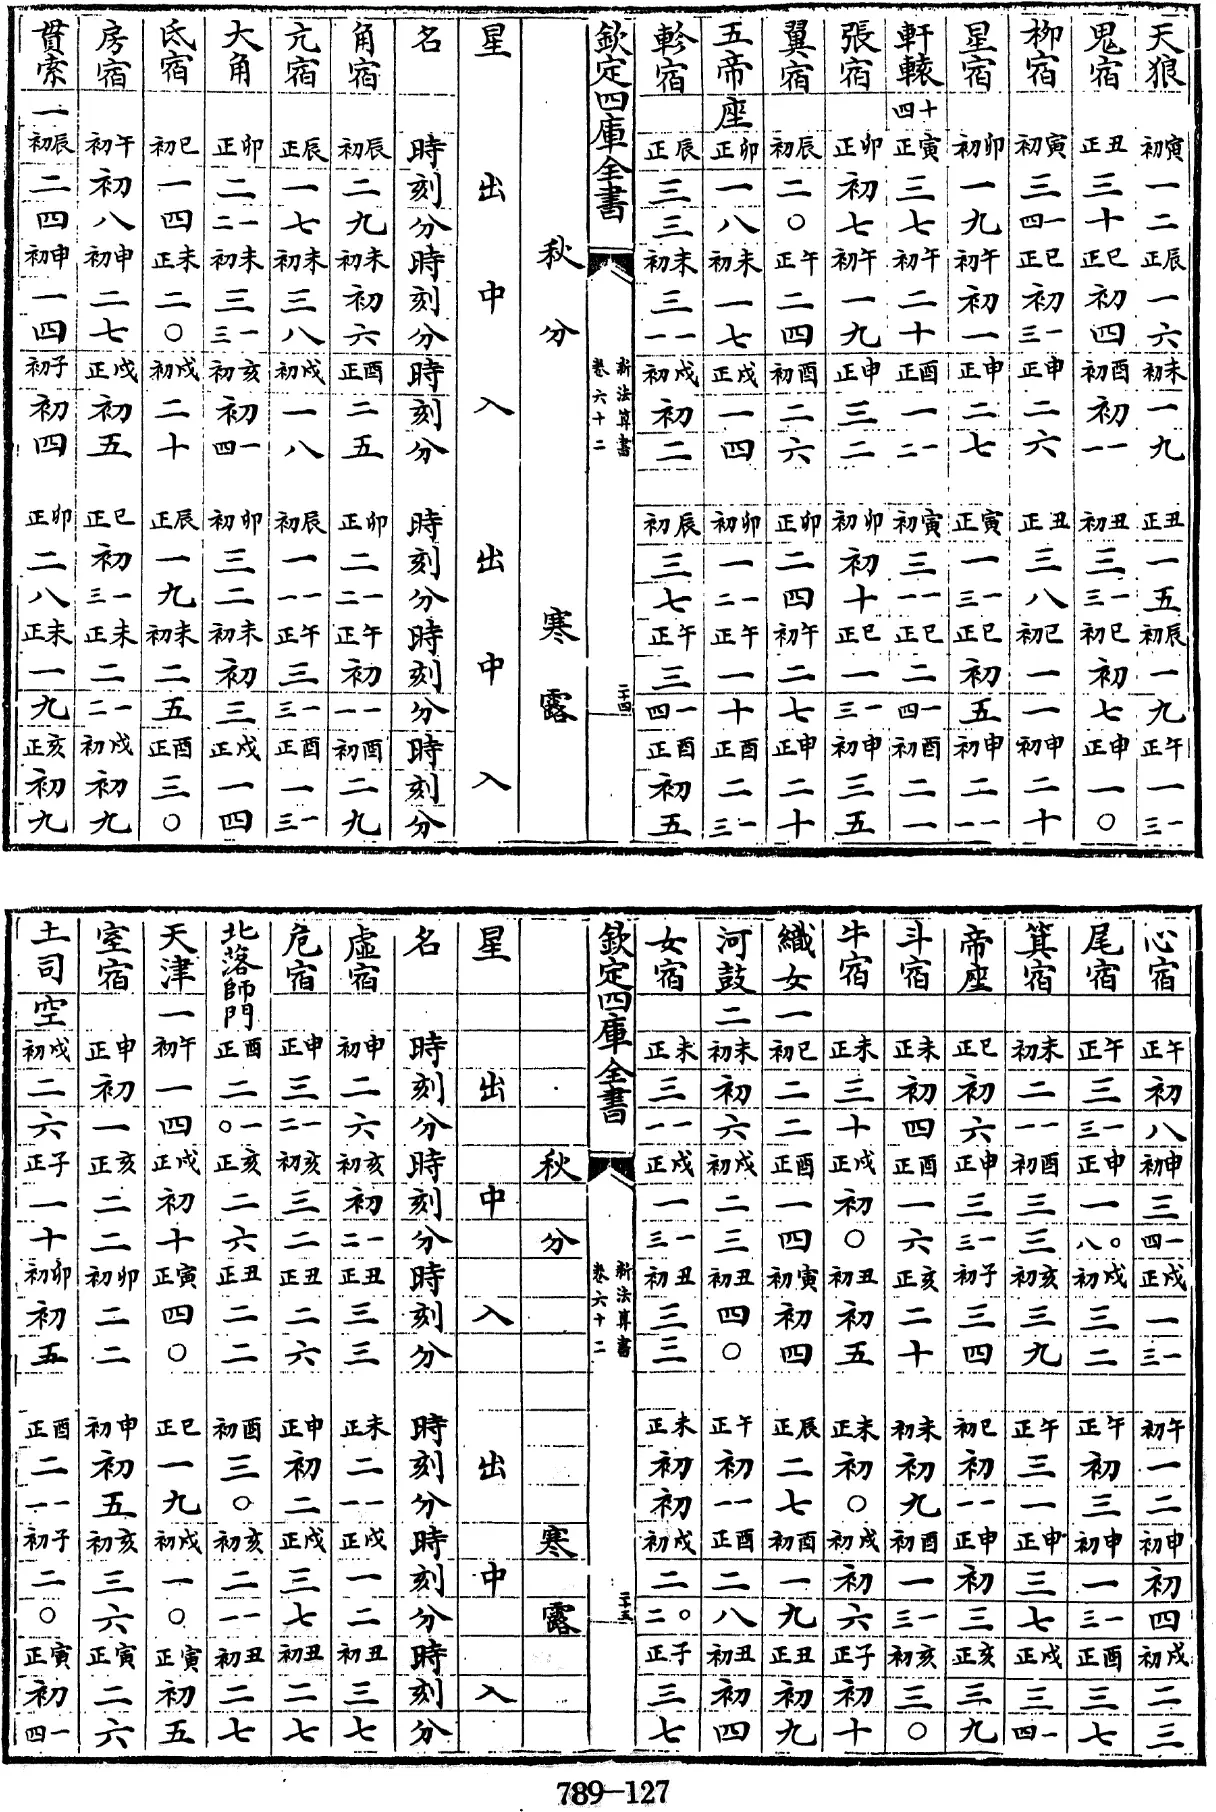 天狼 寅初 一 二 辰正 一 六 未初 一 九 丑正 一 五 辰初 一 九 午正 一 一三
鬼宿 丑正 三 十 巳正 初 四 酉初 初 一一 丑初 三 一三 巳初 初 七 申正 一 〇
柳宿 寅初 三 一四 巳正 初 一三 申正 二 六 丑正 三 八 巳初 一 一 申初 二 十
星宿 卯初 一 九 午初 初 一 申正 二 七 寅正 一 一三 巳正 初 五 申初 二 一一
軒轅十四 寅正 三 七 午初 二 十 酉正 一 一二 寅初 三 一一 巳正 二 一四 酉初 二 一
張宿 卯正 初 七 午初 一 九 申正 三 二 卯初 初 十 巳正 一 一三 申初 三 五
翼宿 辰初 二 〇 午正 二 四 酉初 二 六 卯正 二 四 午初 二 七 申正 二 十
五帝座 卯正 一 八 未初 一 七 戌正 一 四 卯初 一 一二 午正 一 十 酉正 二 一三
軫宿 辰正 三 三 未初 三 一一 戌初 初 二 辰初 三 七 午正 三 一四 酉正 初 五
欽定四庫全書 新法算書 卷六十二 二十四
秋分 寒露
星 出 中 入 出 中 入
名 時 刻 分 時 刻 分 時 刻 分 時 刻 分 時 刻 分 時 刻 分
角宿 辰初 二 九 未初 初 六 酉正 二 五 卯正 二 一二 午正 初 一一 酉初 二 九
亢宿 辰正 一 七 未初 三 八 戌初 一 八 辰初 一 一一 午正 三 一三 酉正 一 一三
大角 卯正 二 一二 未初 三 一三 亥初 初 一四 卯初 三 二 未初 初 三 戌正 一 四
氐宿 巳初 一 四 未正 二 〇 戌初 二 十 辰正 一 九 未初 二 五 酉正 三 〇
房宿 午初 初 八 申初 二 七 戌正 初 五 巳正 初 一三 未正 二 一二 戌初 初 九
貫索一 辰初 二 四 申初 一 四 子初 初 四 卯正 二 八 未正 一 九 亥正 初 九
心宿 午正 初 八 申初 三 一四 戌正 一 一三 午初 一 二 申初 初 四 戌初 二 三
尾宿 午正 三 一三 申正 一 〇八 戌初 三 二 午正 初 三 申初 一 一三 酉正 三 七
箕宿 未初 二 一一 酉初 三 三 亥初 三 九 午正 三 一 申正 三 七 戌正 三 一四
帝座 巳正 初 六 申正 三 一三 子初 三 四 巳初 初 一一 申正 初 三 亥正 三 九
斗宿 未正 初 四 酉正 一 六 亥正 二 十 未初 初 九 酉初 一 一三 亥初 三 〇
牛宿 未正 三 十 戌正 初 〇 丑初 初 五 未正 初 〇 戌初 初 六 子正 初 十
織女一 巳初 二 二 酉正 一 四 寅初 初 四 辰正 二 七 酉初 一 九 丑正 初 九
河鼓二 未初 初 六 戌初 二 三 丑初 四 〇 午正 初 一一 酉正 二 八 丑初 初 四
女宿 未正 三 一一 戌正 一 一三 丑初 三 三 未正 初 初 戌初 二 〇二 子正 三 七
欽定四庫全書 新法算書 卷六十二 二十五
秋分 寒露
星 出 中 入 出 中 入
名 時 刻 分 時 刻 分 時 刻 分 時 刻 分 時 刻 分 時 刻 分
虛宿 申初 二 六 亥初 初 一二 丑正 三 三 未正 二 一一 戌正 一 二 丑初 三 七
危宿 申正 三 一二 亥初 三 二 丑正 二 六 申正 初 二 戌正 三 七 丑初 二 七
北落師門 酉正 二 一〇 亥正 二 六 丑正 二 二 酉初 三 〇 亥初 二 一一 丑初 二 七
天津一 午初 一 四 戌正 初 十 寅正 四 〇 巳正 一 九 戌初 一 〇 寅正 初 五
室宿 申正 初 一 亥正 二 二 卯初 二 二 申初 初 五 亥初 三 六 寅正 二 六
土司空 戌初 二 六 子正 一 十 卯初 初 五 酉正 二 一一 子初 二 〇 寅正 初 一四
789-127